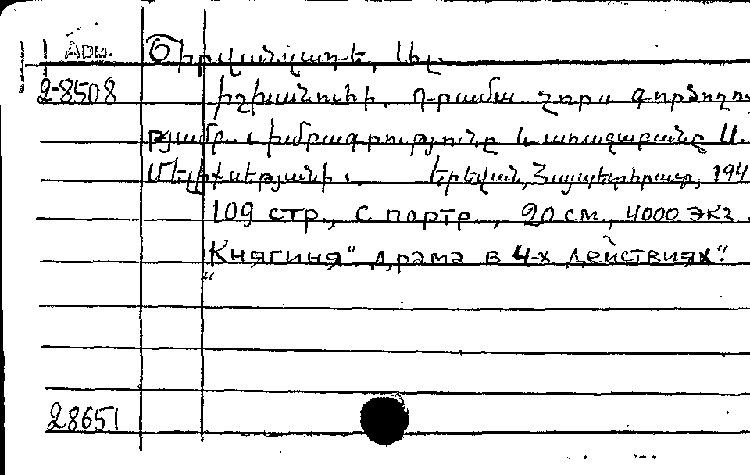 Арм. Շիրվանզադե, Ալ.
2-8508 Իշխանուհի. Դրամա չորս գործողու-
թյամբ. Խմբագրությունը և առաջաբանը Ա.
Մելիքսեթյանի. Երևան, Հայպետհրատ, 194
109 стр., с портр., 20 см., 4000 экз.
„Княгиня“ драма в 4-х действиях“.
28651